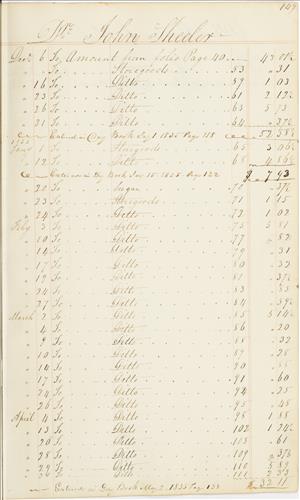 149
Mr. John Sheeler
Decr 6 To Amount from folio Page 40
" To Storegoods 53 " 31
" 16 To Ditto 59 1 03
" 23 To Ditto 61 2 12½
" 26 To Ditto 63 5 73
" 31 To Ditto 64 " 37½
Entered in Day Book Jany 1 1835 Page 118 52 58½
1835
Jany 1 To Storegoods 65 3 06½
" 12 To Ditto 68 4 86½
Entered in Day Book Jan 15 1835 Page 122 $ 7 93
" 21 To Sugar 71 " 37½
" 23 To Storegoods 71 1 15
" 24 To Ditto 72 1 02
Feby 3 To Ditto 75 5 81
" 10 To Ditto 77
" 14 To Ditto 31
" 17 To Ditto 80 " 32
" 19 To Ditto 81 " 37½
" 24 To Ditto 83 " 35
" 27 To Ditto 84
March 2 To Ditto 85
" 4 To Ditto 86 " 20
" 9 To Ditto 88 " 32
" 10 To Ditto 89 " 28
" 14 To Ditto
" 17 To Ditto 91 " 60
" 24 To Ditto 94 " 25
" 26 To Ditto 95 " 45
April 4 To Ditto 98 1 88
" 13 To Ditto 102 1 24½
" 20 To Ditto 105 " 61
" 28 To Ditto 109 2 37½
" 29 To Ditto 110
Entered in Day Book May 2 1835 Page 138 32 11